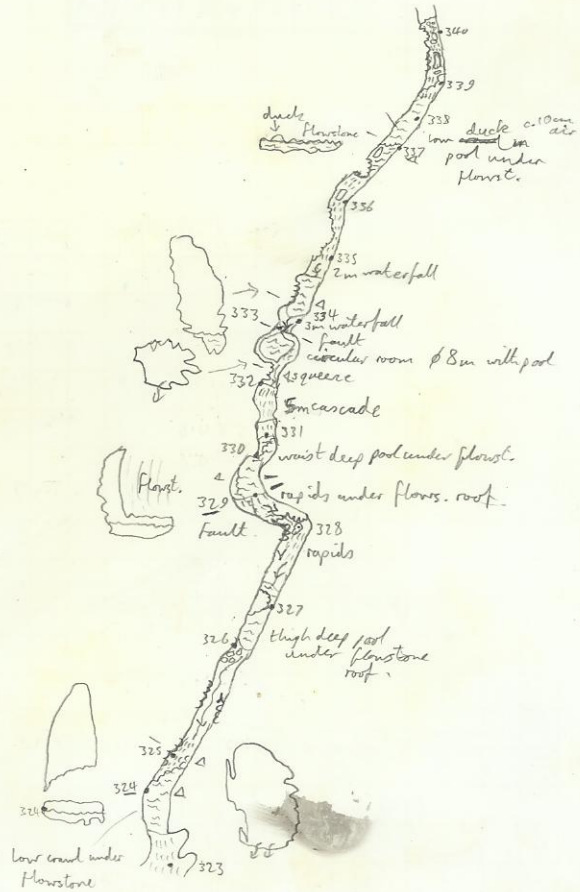 340
339
duck
flowstone
338
low duck in c.10cm air
337
pool under
flowst.
336
335
2m waterfall
333
334
3m waterfall
fault
circular room ø8m with pool
squeeze
332
5m cascade
331
330
waist deep pool under flowst.
flowst.
329
rapids under flows. roof.
Fault.
328
rapids
327
326
thigh deep pool
under flowstone
roof.
325
324
324
low crawl under
flowstone
323